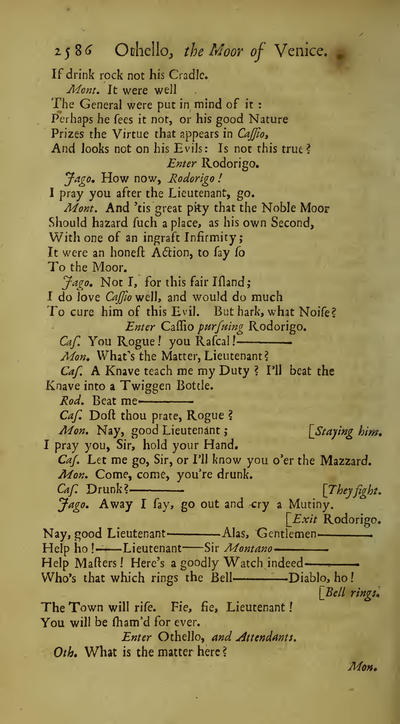 2586 Othello, the Moor of Venice.
If drink rock not his Cradle.
Mont. It were well
The General were put in mind of it :
Perhaps he ſees it not, or his good Nature
Prizes the Virtue that appears in Caſſio,
And looks not on his Evils: Is not this true?
Enter Rodorigo.
Jago. How now, Rodorigo!
I pray you after the Lieutenant, go.
Mont. And 'tis great pity that the Noble Moor
Should hazard ſuch a place, as his own Second,
With one of an ingraft Infirmity;
It were an honeſt Action, to ſay ſo
To the Moor.
Jago. Not I, for this fair Iſland;
I do love Caſſio well, and would do much
To cure him of this Evil. But hark, what Noiſe?
Enter Caſſio purſuing Rodorigo.
Caſ. You Rogue! you Raſcal!———
Mon. What's the Matter, Lieutenant?
Caſ. A Knave teach me my Duty? I'll beat the
Knave into a Twiggen Bottle.
Rod. Beat me———
Caſ. Doſt thou prate, Rogue?
Mon. Nay, good Lieutenant; [Staying him.
I pray you, Sir, hold your Hand.
Caſ. Let me go, Sir, or I'll know you o'er the Mazzard.
Mon. Come, come, you're drunk.
Caſ. Drunk?——— [They fight.
Jago. Away I ſay, go out and cry a Mutiny.
[Exit Rodorigo.
Nay, good Lieutenant———Alas, Gentlemen———
Help ho!——Lieutenant——Sir Montano———
Help Maſters! Here's a goodly Watch indeed———
Who's that which rings the Bell———Diablo, ho!
[Bell rings.
The Town will riſe. Fie, fie, Lieutenant!
You will be ſham'd for ever.
Enter Othello, and Attendants.
Oth. What is the matter here?
Mon.